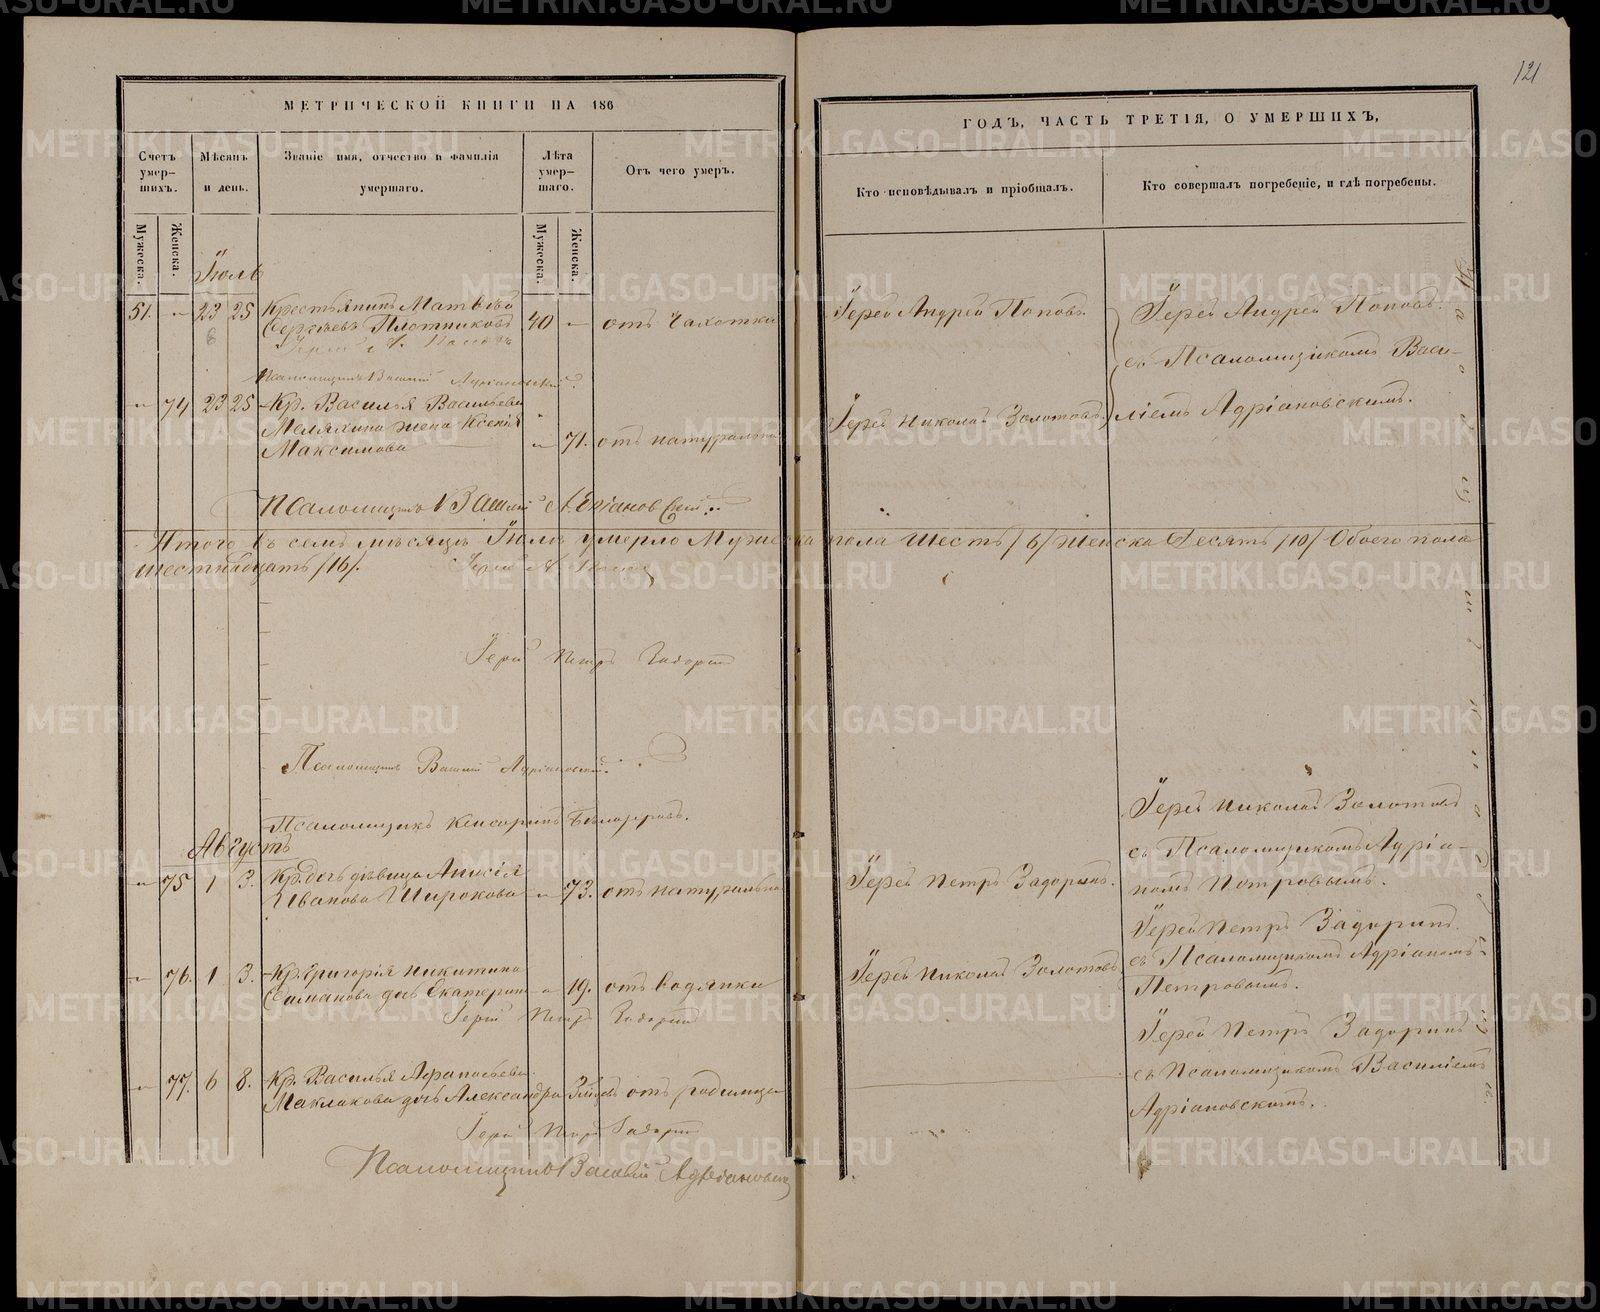 121
МЕТРИЧЕСКОЙ КНИГИ НА 186
ГОДЪ, ЧАСТЬ ТРЕТІЯ, О УМЕРШИХЪ,
Счетъ умер-шихъ.
Мѣсяцъ и день.
Званіе имя, отчество и фамилія умершаго.
Лѣта умер-шаго.
Отъ чего умеръ.
Кто исповѣдывалъ и пріобщалъ.
Кто совершалъ погребеніе, и гдѣ погребены.
Мужеска.
Женска.
Мужеска.
Женска.
Іюль
51. " 23 25 Крестьянинъ Матвѣй
Сергѣевъ Плотниковъ 40 " отъ чахотки
Іерей Андрей Поповъ.
Іерей Андрей Поповъ.
съ Псаломщикомъ Васи-
ліемъ Адріановскимъ.
Іерей А. Поповъ
Псаломщикъ Василій Адріановскій.
" 74 23 25 Кр. Василья Васильева
Меляхина жена Ксенія
Максимова " 71. отъ натуральной
Іерей Николай Золотовъ.
Псаломщикъ Василій Адріановскій.
Итого въ семъ мѣсяцѣ Іюлѣ умерло Мужеска пола Шесть /6/ Женска Десять /10/ Обоего пола
шестнадцать /16/.
Іерей А. Поповъ
Іерей Петръ Задоринъ
Псаломщикъ Василій Адріановскій.
Псаломщикъ Кенсоринъ Бѣлозеровъ.
Августъ
" 75 1 3. Кр. дочь дѣвица Анисія
Иванова Широкова " 73. отъ натуральной
Іерей Петръ Задоринъ.
Іерей Николай Золотовъ
съ Псаломщикомъ Адріа-
номъ Петровымъ.
" 76. 1 3. Кр. Григорія Никитина
дочь Екатерина " 19. отъ водянки
Іерей Николай Золотовъ
Іерей Петръ Задоринъ
съ Псаломщикомъ Адріаномъ
Петровымъ.
Іерей Петръ Задоринъ
" 77. 6 8. Кр. Василья Афанасьева
Маклакова дочь Александра отъ родимца
Іерей Петръ Задоринъ
съ Псаломщикомъ Василіемъ
Адріановскимъ.
Іерей Петръ Задоринъ
Псаломщикъ Василій Адріановскій
METRIKI.GASO-URAL.RU